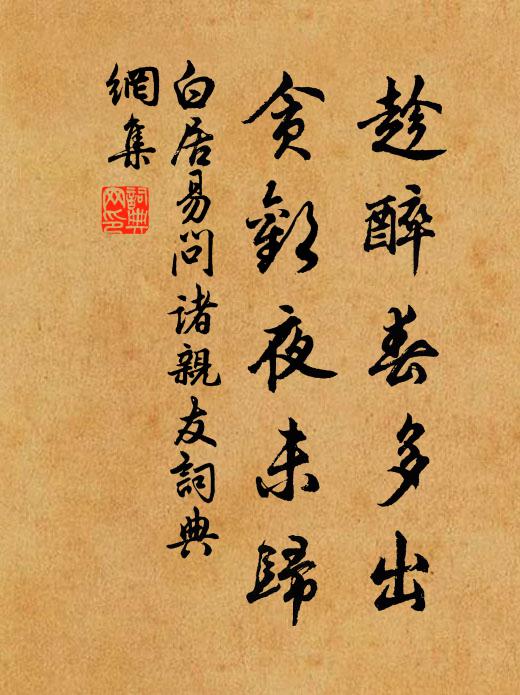 趁醉春多出
貪歡夜未歸
白居易問諸親友詞典
網集
詞典
網印